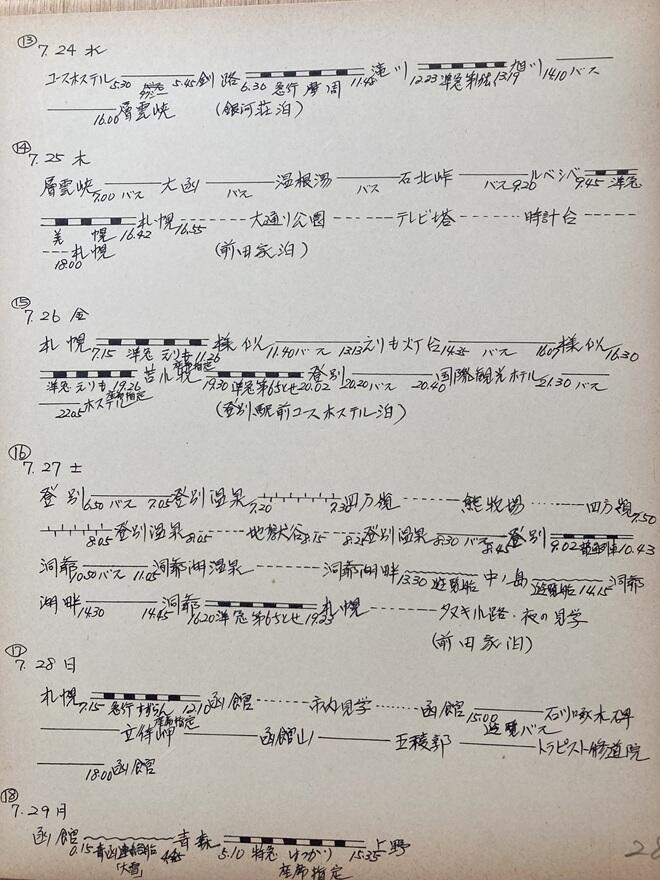 ⑬
7. 24 水
ユースホステル 5.30 5.45 釧路 6.30 急行 摩周 11.45 滝川 12.23 準急 第1 13.19 旭川 14.10 バス
16.00 層雲峡 (銀河荘泊)
⑭
7. 25 木
層雲峡 7.00 バス 大函 バス 温根湯 バス 石北峠 バス 9.20 ルベシベ 9.45 準急
美幌 16.42 札幌 16.55 大通り公園 テレビ塔 時計台
札幌 18.00 (前田家泊)
⑮
7. 26 金
札幌 7.15 準急 えりも 11.36 様似 11.40 バス 13.13 えりも灯台 14.35 バス 16.07 様似 16.30
準急 えりも 19.26 座席指定 苫小牧 19.30 準急 第6ちとせ 20.02 登別 20.20 バス 20.40 国際観光ホテル 21.30 バス
22.05 ホステル (登別駅前ユースホステル泊)
⑯
7. 27 土
登別 6.50 バス 7.05 登別温泉 7.20 7.30 四方嶺 熊牧場 四方嶺 7.50
8.05 登別温泉 8.05 地獄谷 8.15 8.25 登別温泉 8.30 バス 8.45 登別 9.02 普通列車 10.43
洞爺 10.50 バス 11.05 洞爺湖温泉 洞爺湖畔 13.30 遊覧船 中ノ島 遊覧船 14.15 洞爺
湖畔 14.30 14.45 洞爺 16.20 準急 第6ちとせ 19.23 札幌 タヌキ小路・夜の見学
(前田家泊)
⑰
7. 28 日
札幌 7.15 急行 すずらん 座席指定 12.10 函館 市内見学 函館 15.00 遊覧バス 石川啄木碑
立待岬 函館山 五稜郭 トラピスト修道院
18.00 函館
⑱
7. 29 月
函館 0.15 青函連絡船 「大雪」 4.45 青森 5.10 特急 はつかり 15.35 上野
座席指定
28